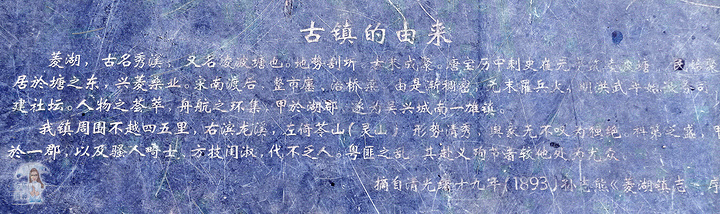 古镇的由来
菱湖，古名秀溪，又名凌波塘也。地势剖圻，士来成聚。唐宝历中刺史在元亮筑菱湖塘，民始聚
居於塘之东，兴菱桑业。宋南渡后，整市廛，治桥梁，由是渐稠密。元末罹兵火，明洪武年始设务司，
建社坛。人物之荟萃，舟航之环集，甲於湖郡，遂为吴兴城南一雄镇。
我镇周围不越四五里，右滨龙溪，左倚苓山（灵山），形势清秀，舆家无不叹为独绝。科第之盛，甲
於一郡，以及骚人畸士，方技闺淑，代不乏人。粤匪之乱，其赴义殉节者较他处为尤众。
摘自清光绪十九年（1893）孙志熊《菱湖镇志》序